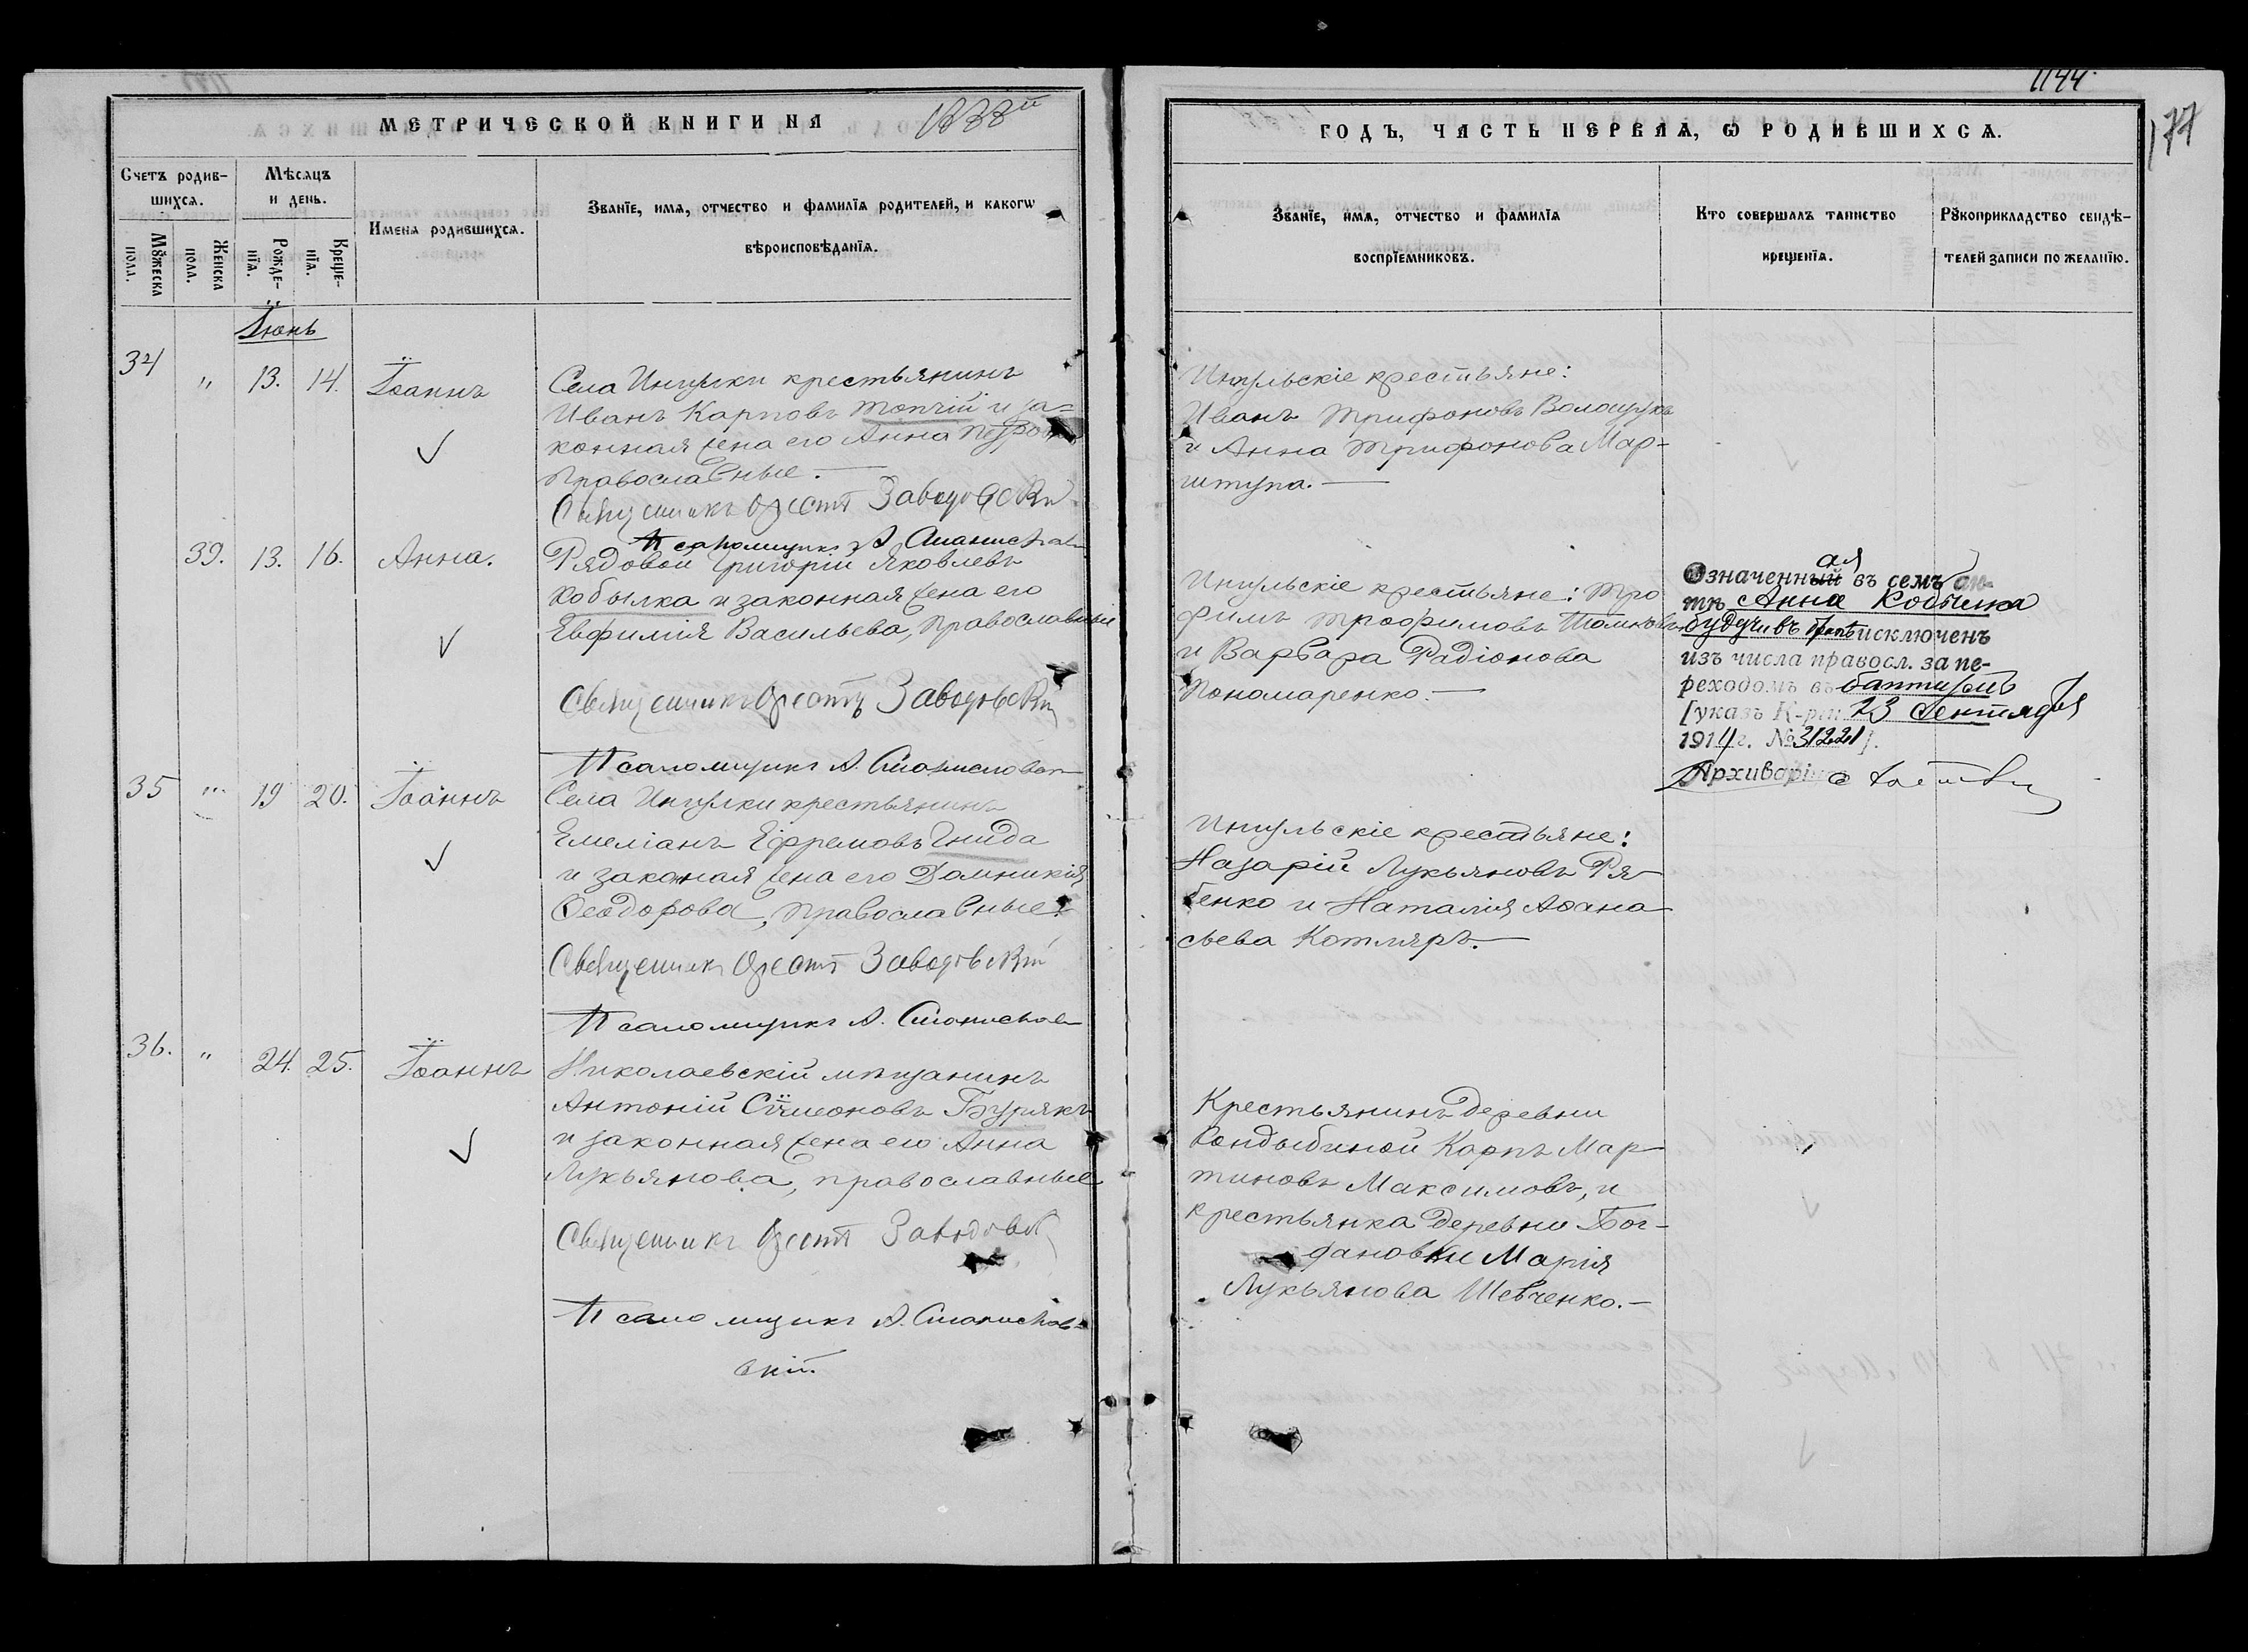 1144.
177
МЕТРИЧЕСКОЙ КНИГИ НА 1888й
ГОДЪ, ЧАСТЬ ПЕРВАЯ, Ѡ РОДИВШИХСѦ.
Счетъ родив-
шихсѧ.
Мѣсѧцъ
и день.
Мꙋжеска
пола.
Женска
пола.
Рожде-
нїѧ.
Креще-
нїѧ.
Имена родившихсѧ.
Званїе, имѧ, отчество и фамилїѧ родителей, и какогѡ
вѣроисповѣданїѧ.
Званїе, имѧ, отчество и фамилїѧ
воспрїемниковъ.
Кто совершалъ таинство
крещенїѧ.
Рꙋкоприкладство свидѣ-
телей записи по желанїю.
Іюнь
34 " 13. 14. Іоаннъ
Села Ингулки крестьянинъ
Иванъ Карповъ Топчій и за=
конная жена его Анна
православные.
Священникъ Орестъ Заводовскій
Псаломщикъ А.
Ингульскіе крестьяне:
Иванъ Трифоновъ Волощукъ
и Анна Трифонова Мар-
штупа.
39. 13. 16. Анна.
Рядовой Григорій Яковлевъ
Кобылка и законная жена его
Евфимія Васильева, православные
Священникъ Орестъ Заводовскій
Псаломщикъ А.
Ингульскіе крестьяне: Тро
фимъ Трофимовъ
и Варвара Радіонова
Пономаренко.
ая
Означенный въ семъ ак-
тѣ Анна Кобылка
будучи въ бракѣ исключенъ
изъ числа правосл. за пе-
реходомъ въ баптизмъ
[указъ К-ріи 23 Сентября
1914 г. № 31221].
Архиваріусъ
35 " 19 20. Іоаннъ
Села Ингулки крестьянинъ
Емеліанъ Ефремовъ Гнида
и законная жена его Домникія
Ѳеодорова, православные.
Священникъ Орестъ Заводовскій
Псаломщикъ А.
Ингульскіе крестьяне:
Назарій Лукьяновъ Ря-
бенко и Наталія Аѳана
сьева Котляръ.
36. " 24. 25. Іоаннъ
Николаевскій мѣщанинъ
Антоній Сѵмеоновъ Бурякъ
и законная жена его Анна
Лукьянова, православные
Священникъ Орестъ Заводовскій
Псаломщикъ А. Станиславов
скій.
Крестьянинъ деревни
Кондыбиной Карпъ Мар-
тиновъ Максимовъ, и
крестьянка деревни Бог-
дановки Марія
Лукьянова Шевченко.